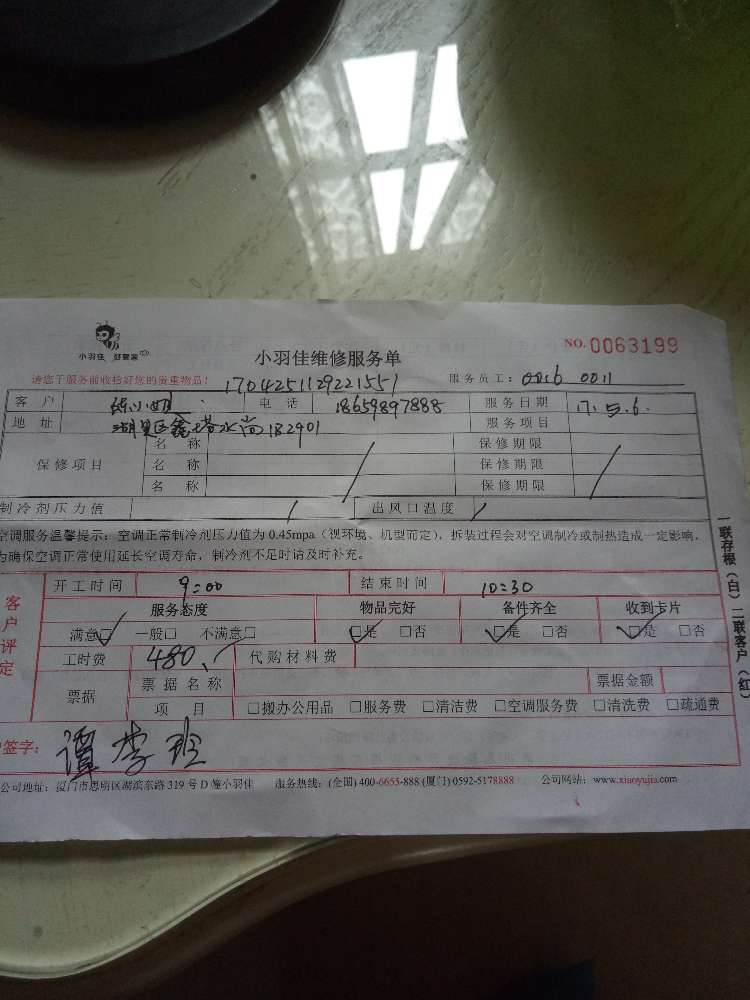 小羽佳 好管家
小羽佳维修服务单
NO. 0063199
请您于服务前收拾好您的贵重物品! 1704251129221551 服务员工: 0016 0011
客 户 陈小姐 电 话 18659897888 服务日期 17.5.6.
地 址 湖里区 水尚 182901 服务项目
保修项目 名 称 保修期限
名 称 保修期限
名 称 保修期限
制冷剂压力值 / 出风口温度 /
空调服务温馨提示: 空调正常制冷剂压力值为 0.45mpa (视环境、机型而定), 拆装过程会对空调制冷或制热造成一定影响,
为确保空调正常使用延长空调寿命, 制冷剂不足时请及时补充。
客户评定
开工时间 9:00 结束时间 10:30
服务态度 物品完好 备件齐全 收到卡片
满意☑ 一般□ 不满意□ ☑是 □否 ☑是 □否 ☑是 □否
工时费 480 代购材料费
票据 票据名称 票据金额
项 目 □搬办公用品 □服务费 □清洁费 □空调服务费 □清洗费 □疏通费
户签字: 谭李
公司地址: 厦门市思明区湖滨东路 319 号 D 幢小羽佳 服务热线: (全国) 400-6655-888 (厦门) 0592-5178888 公司网站: www.xiaoyujia.com
一联存根(白) 二联客户(红)